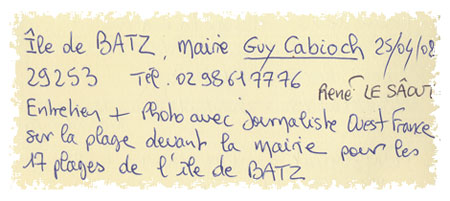 Île de BATZ, mairie Guy Cabioch 25/04/02
29253 Tél. 0298617776 René LE SÂOUT
Entretien + Photo avec journaliste Ouest France
sur la plage devant la mairie pour les
17 plages de l'île de BATZ